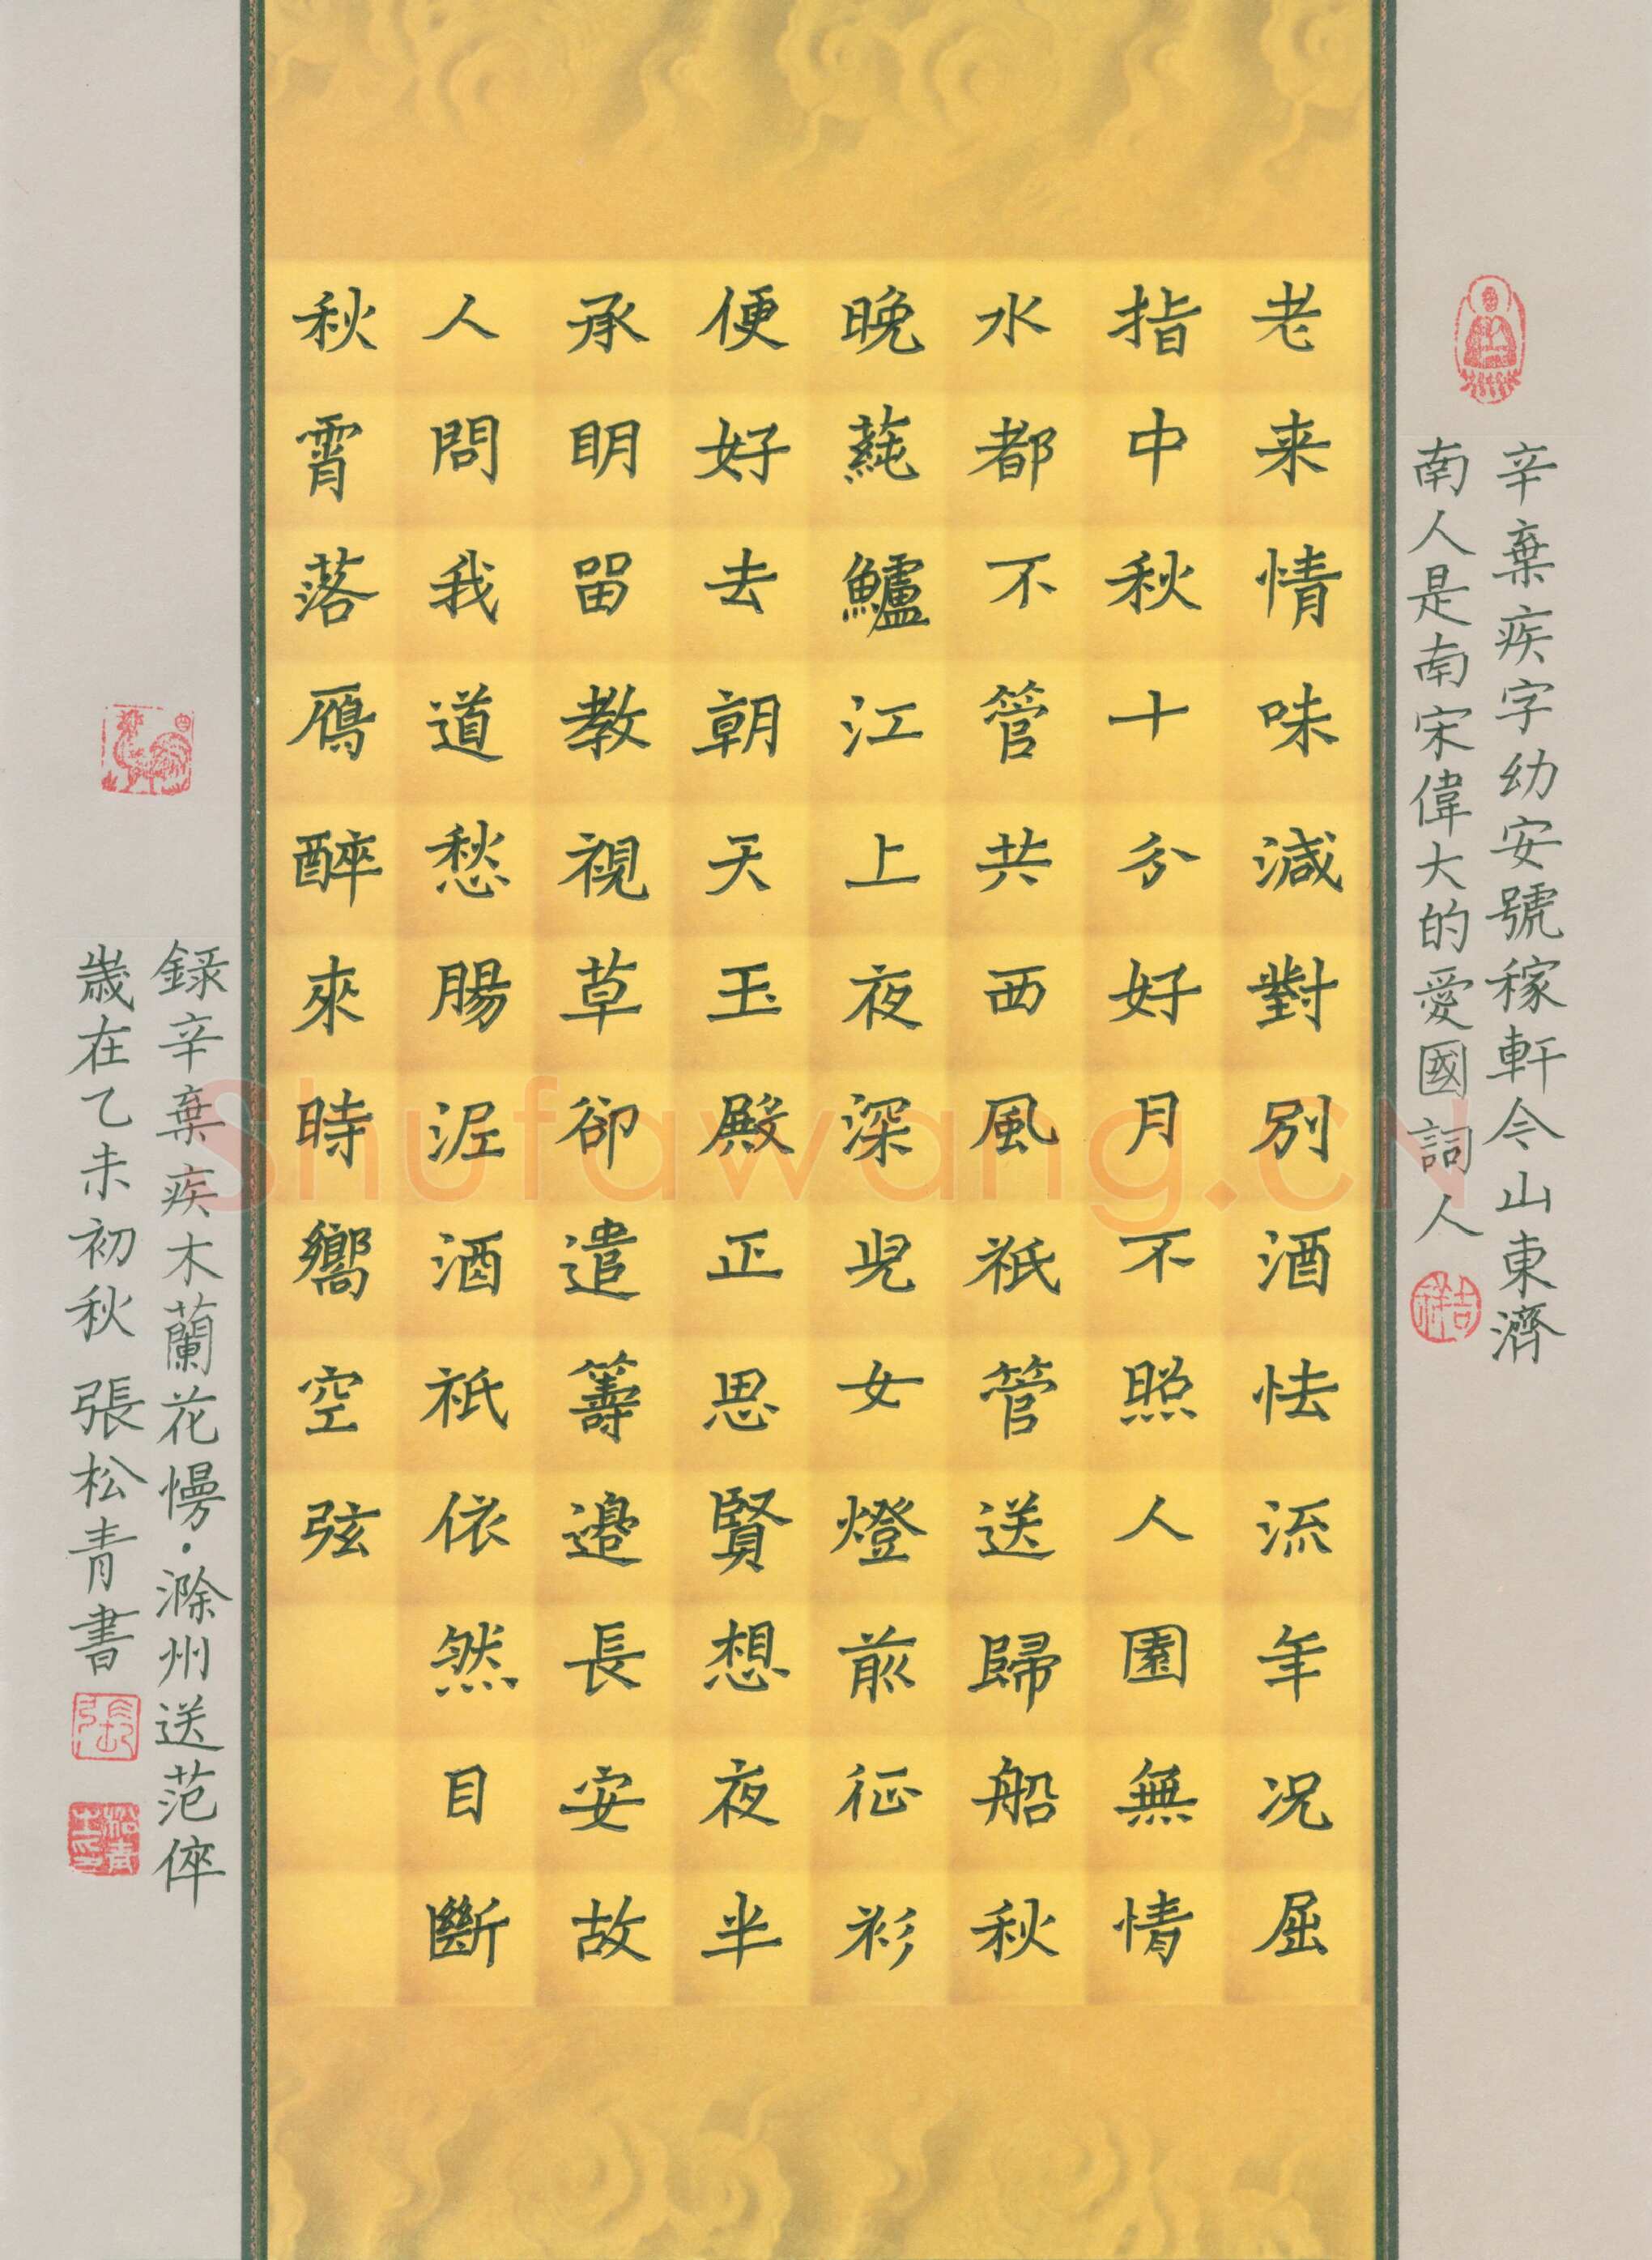 辛棄疾字幼安號稼軒今山東濟
南人是南宋偉大的愛國詞人
吉祥
老来情味減對別酒怯流年况屈
指中秋十分好月不照人圎無情
水都不管共西風祇管送歸船秋
晚蒓鱸江上夜深皃女燈前征衫
便好去朝天玉殿正思賢想夜半
承明留教視草卻遣籌邊長安故
人問我道愁腸泥酒祇依然目斷
秋霄落鴈醉來時響空弦
錄辛棄疾木蘭花慢·滁州送范倅
歲在乙未初秋 張松青書
張
Shufawang.CN